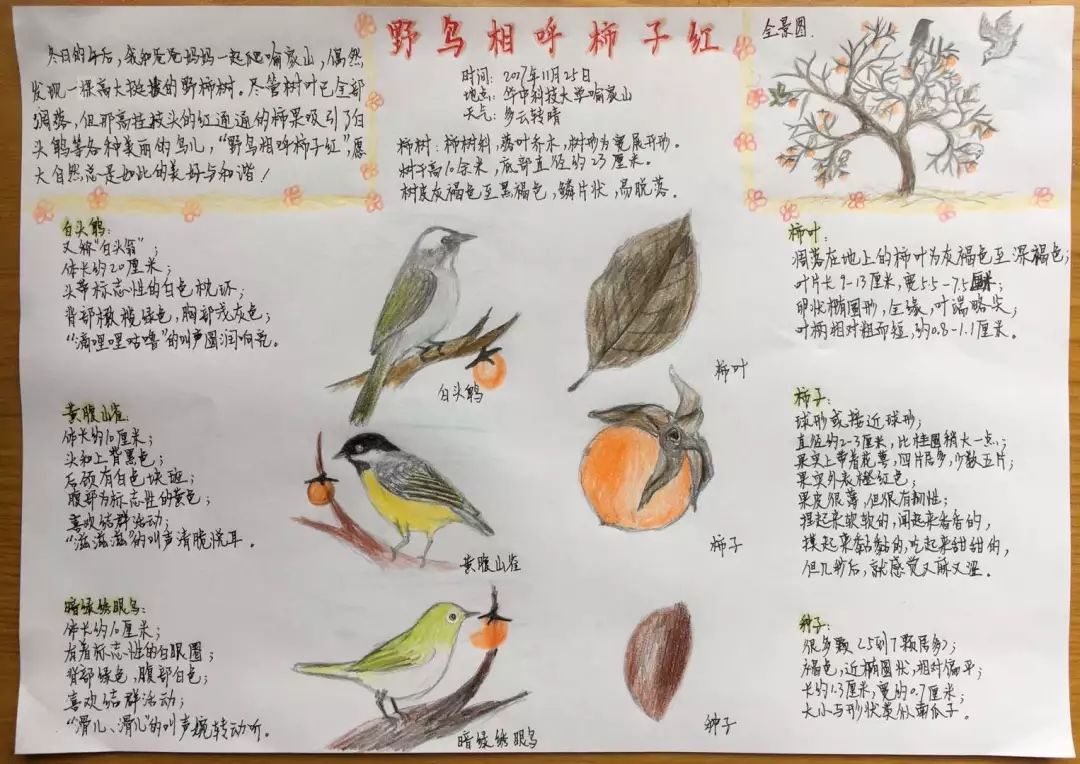 野鸟相呼柿子红
冬日的午后，我和爸爸妈妈一起爬喻家山，偶然
发现一棵高大挺拔的野柿树。尽管树叶已全部
凋落，但那高挂枝头的红通通的柿果吸引了白
头鹎等各种美丽的鸟儿，“野鸟相呼柿子红”，愿
大自然总是如此的美好与和谐！
时间：2017年11月25日
地点：华中科技大学喻家山
天气：多云转晴
柿树：柿树科，落叶乔木，树形为宽展开形。
树干高10余米，底部直径约23厘米。
树皮灰褐色至黑褐色，鳞片状，易脱落。
全景图
白头鹎：
又称“白头翁”；
体长约20厘米；
头带标志性的白色枕环；
背部橄榄绿色，胸部浅灰色；
“滴哩哩咕噜”的叫声圆润响亮。
白头鹎
柿叶
柿叶：
凋落在地上的柿叶为灰褐色至深褐色；
叶片长9-13厘米，宽5.5-7.5厘米；
卵状椭圆形，全缘，叶端略尖；
叶柄相对粗而短，约0.8-1.1厘米。
黄腹山雀：
体长约10厘米；
头和上背黑色；
后颈有白色块斑；
腹部为标志性的黄色；
喜欢结群活动；
“滋滋滋”的叫声清晓悦耳。
黄腹山雀
柿子
柿子：
球形或接近球形；
直径约2-3厘米，比桂圆稍大一点；
果实上带着花萼，四片居多，少数五片；
果实外表橙红色；
果皮很薄，但很有韧性；
捏起来软软的，闻起来香香的，
摸起来黏黏的，吃起来甜甜的，
但几秒后，就感觉又麻又涩。
暗绿绣眼鸟：
体长约10厘米；
有着标志性的白眼圈；
背部绿色，腹部白色；
喜欢结群活动；
“滑儿、滑儿”的叫声婉转动听。
暗绿绣眼鸟
种子
种子：
很多颗（5到7颗居多）；
褐色，近椭圆状，相对偏平；
长约1.3厘米，宽约0.7厘米；
大小与形状类似南瓜子。